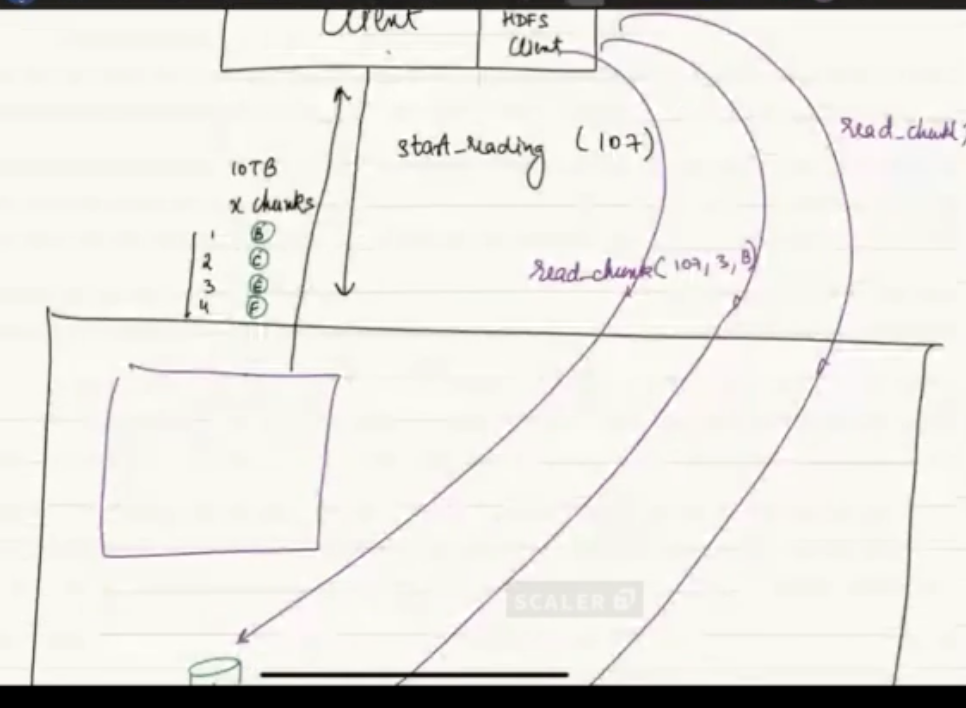 Client
HDFS
Client
start_reading (107)
read_chunk(
10TB
x chunks
1 B
2 C
3 E
4 F
read_chunk(107, 3, B)
SCALER